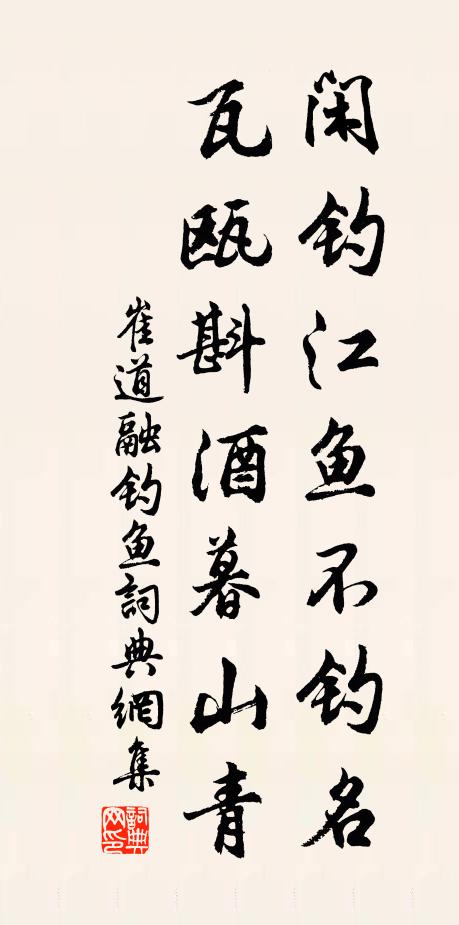 闲钓江鱼不钓名
瓦瓯斟酒暮山青
崔道融钓鱼詞典網集
詞典网印